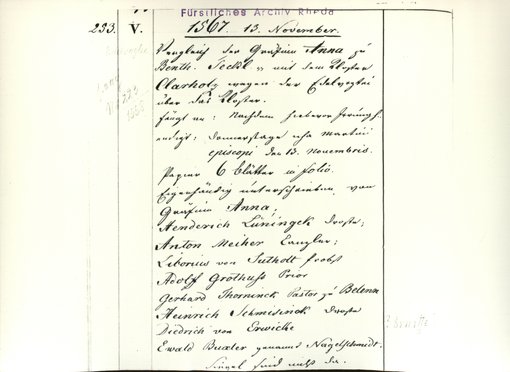 Fürstliches Archiv Rheda
233. V. 1567. 13. November.
Vergleich der Gräfinn Anna zu
Benth. Teckl. mit dem Kloster
Clarholz wegen der Edelvogtei
über das Kloster.
fängt an: Nachdem
endigt: Donnerstags nha Martini
episcopi den 13. Novembris.
Papier 6 Blätter in folio.
Eigenhändig unterschrieben von
Gräfinn Anna,
Henderich Lüningck Droste,
Anton Meiher Canzler,
Liborius von Probst
Adolf Grothuss Prior
Gerhard Pastor zu Belenn
Heinrich Schmeisinck Droste
Diedrich von Erwicke
Ewald Buxter genannt Nagelschmidt.
Siegel sind nicht da.